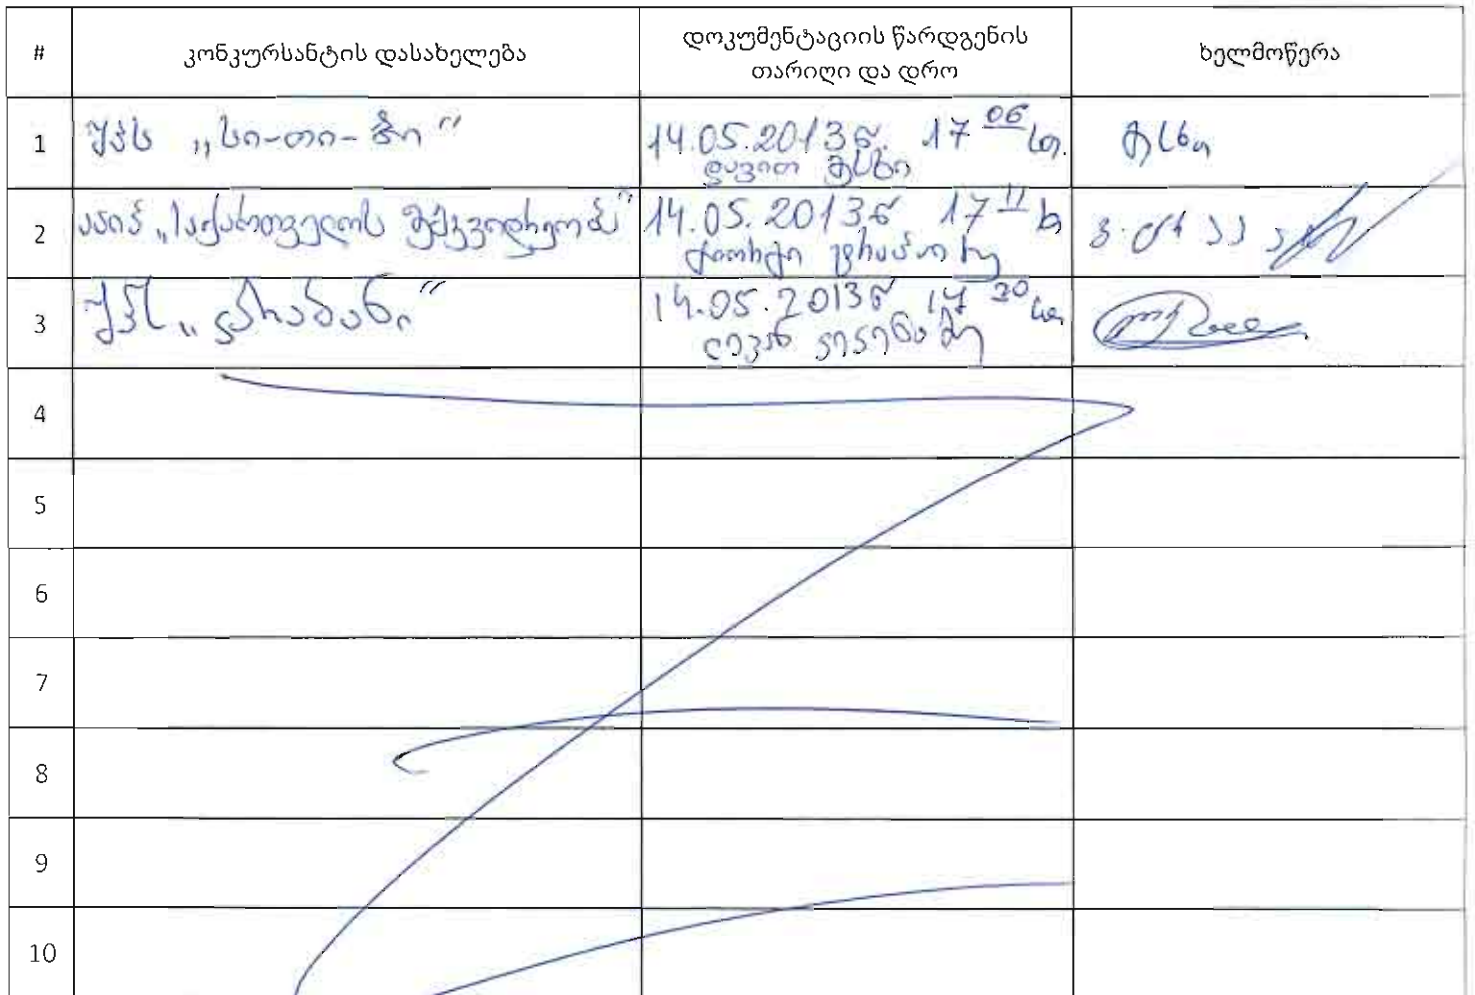 #
კონკურსანტის დასახელება
დოკუმენტაციის წარდგენის
თარიღი და დრო
ხელმოწერა
1
შპს „სი-თი-
14.05.2013წ. 17 06 სთ.
დავით
2
ააიპ „საქართველოს მემკვიდრეობა"
14.05.2013წ 17 11 სთ
გიორგი
3
შპს „კარაბანი"
14.05.2013წ 17 20 სთ
ლევან
4
5
6
7
8
9
10